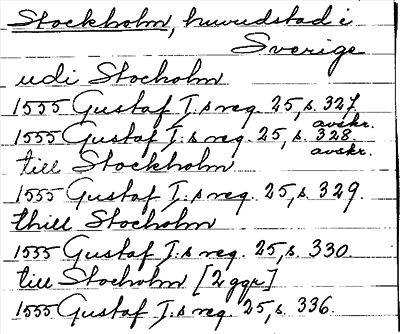 Stockholm, huvudstad i
Sverige
udi Stocholm
1555 Gustaf I:s reg. 25, s. 327.
avskr.
1555 Gustaf I:s reg. 25, s. 328.
avskr.
till Stockholm
1555 Gustaf I:s reg. 25, s. 329.
thill Stocholm
1555 Gustaf I:s reg. 25, s. 330.
till Stocholm [2 ggr]
1555 Gustaf I:s reg. 25, s. 336.